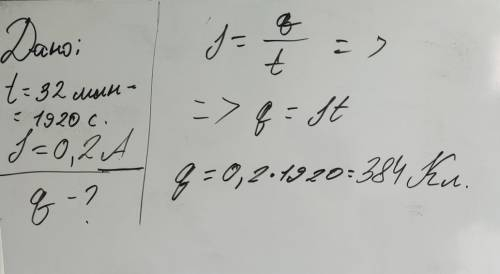 Дано:
t = 32 мин =
= 1920 с.
I = 0,2 А
q - ?
I = q/t =>
=> q = It
q = 0,2 · 1920 = 384 Кл.